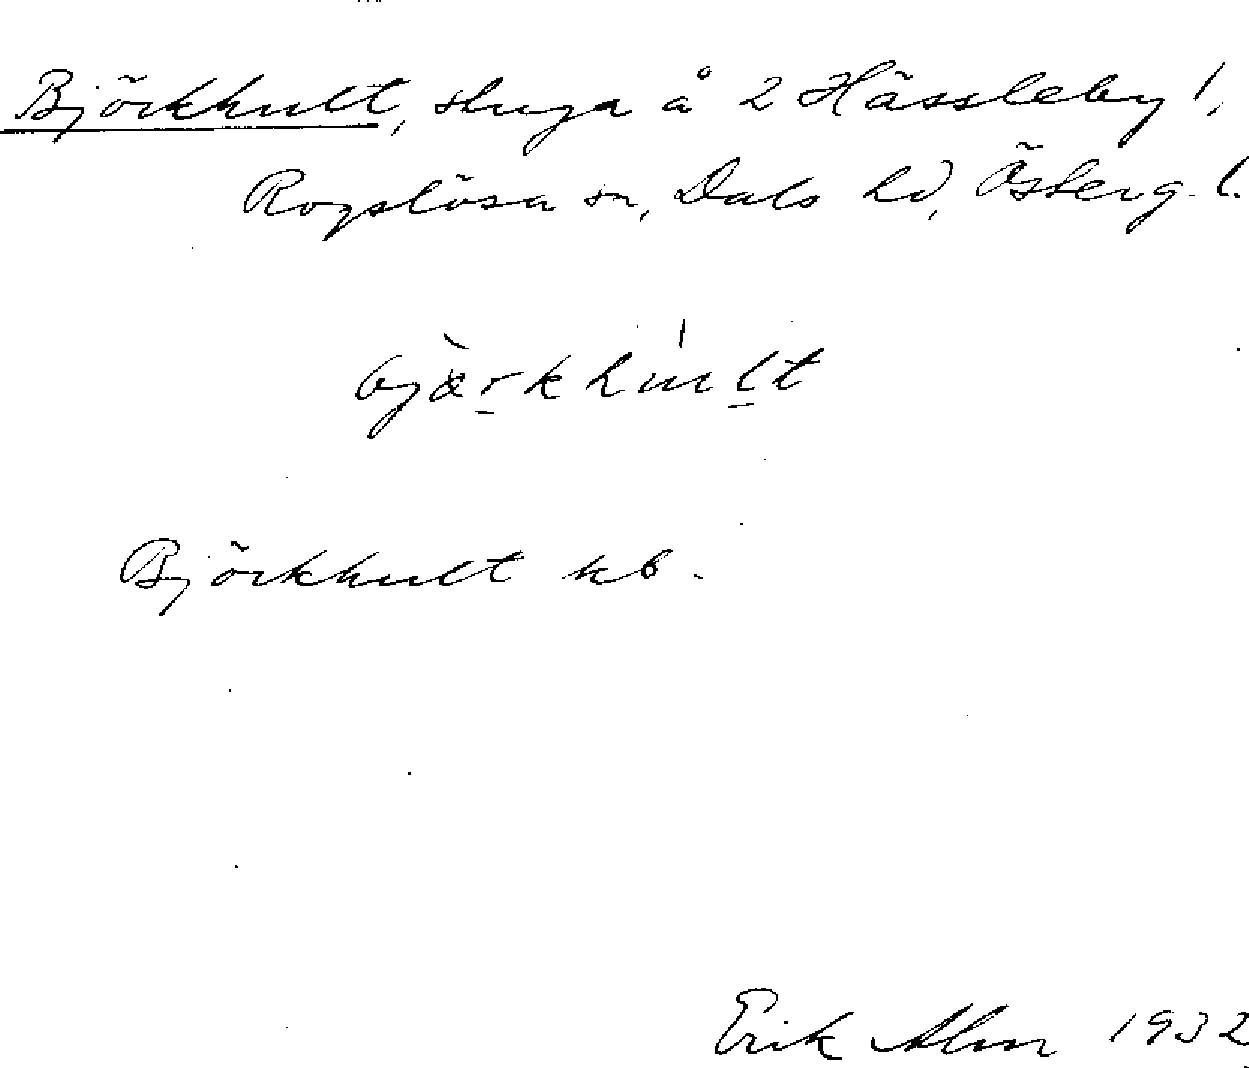 Björkhult, stuga å 2 Hässleby 1,
Rogslösa sn, Dals hd, Österg. l.
bjærkhult
Björkhult kb.
Erik Alm 1932